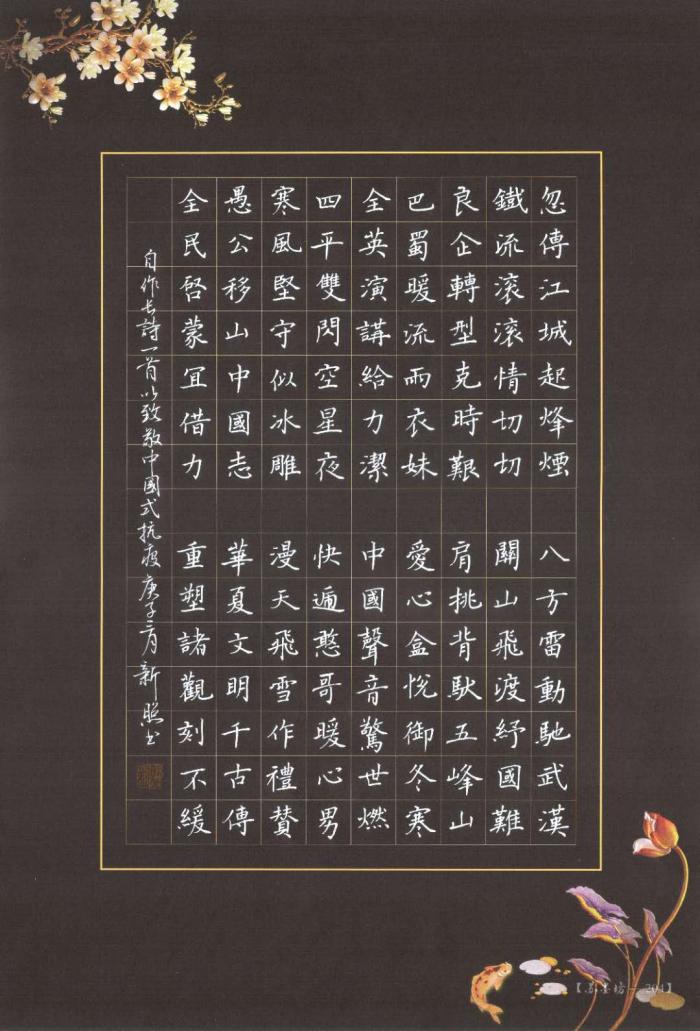 忽傳江城起烽煙 八方雷動馳武漢
鐵流滾滾情切切 關山飛渡紓國難
良企轉型克時艱 肩挑背馱五峰山
巴蜀暖流雨衣妹 愛心盒悅御冬寒
全英演講給力潔 中國聲音驚世燃
四平雙閃空星夜 快遞憨哥暖心男
寒風堅守似冰雕 漫天飛雪作禮贊
愚公移山中國志 華夏文明千古傳
全民啓蒙宜借力 重塑諸觀刻不緩
自作長詩一首以致敬中國式抗疫庚子二月新照书
【苏墨坊—204】